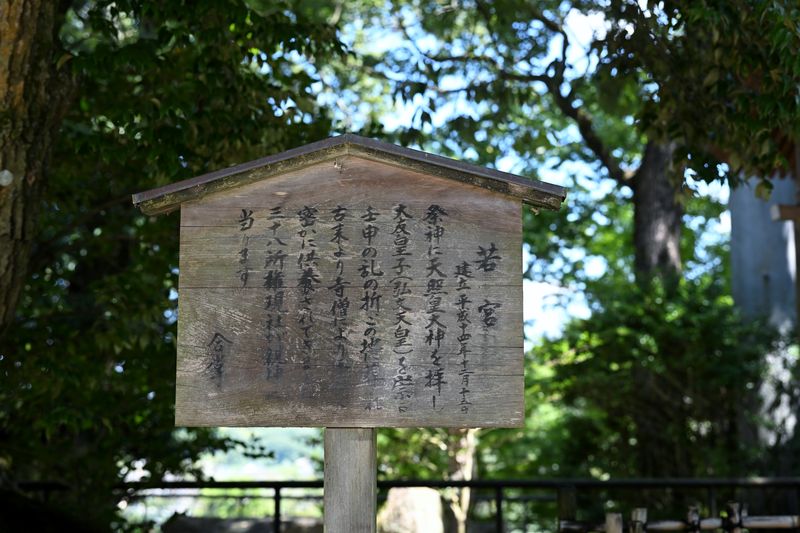 若宮
建立 平成十四年十二月十三日
祭神に天照皇大神を拝し
大友皇子(弘文天皇)を祭る
壬申の乱の折この地
古来より寺僧により
密かに供養されて
三十八所権現社
当ります